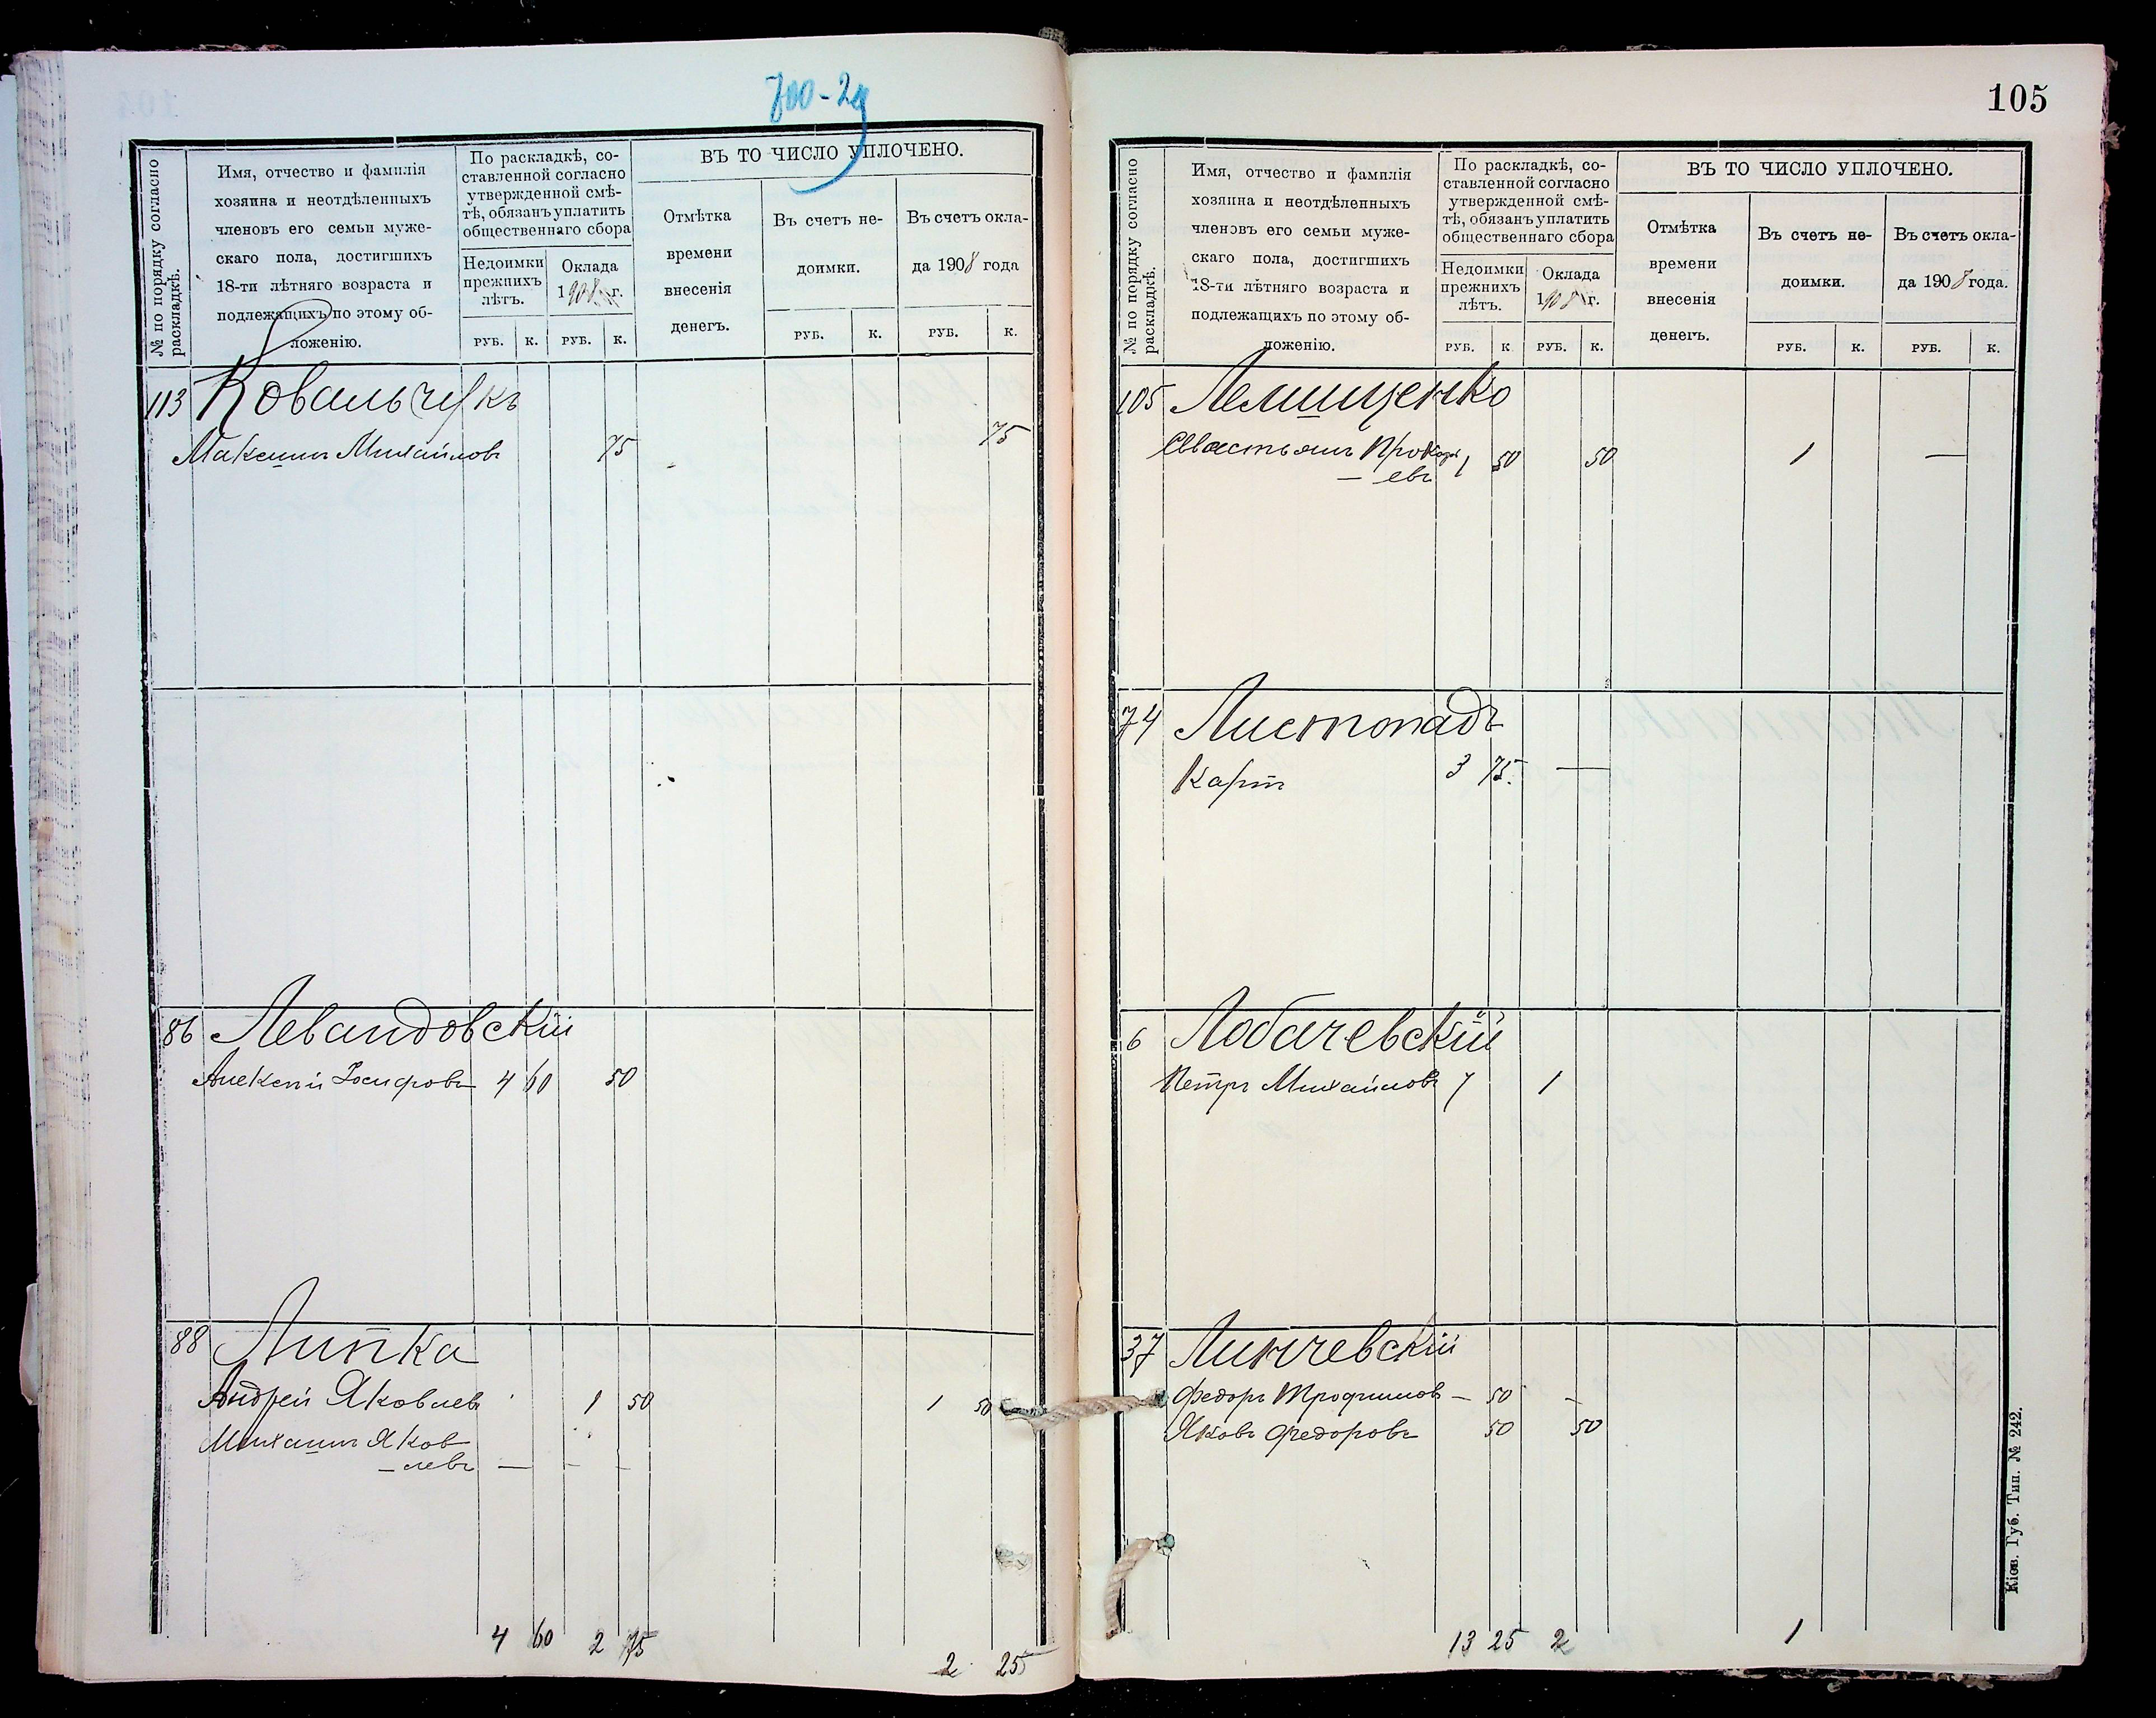 700-24
№ по порядку согласно
раскладкѣ.
Имя, отчество и фамилія
хозяина и неотдѣленныхъ
членовъ его семьи муже-
скаго пола, достигшихъ
18-ти лѣтняго возраста и
подлежащихъ по этому об-
ложенію.
По раскладкѣ, со-
ставленной согласно
утвержденной смѣ-
тѣ, обязанъ уплатить
общественнаго сбора
Недоимки
прежнихъ
лѣтъ.
Оклада
1908 г.
РУБ. К. РУБ. К.
ВЪ ТО ЧИСЛО УПЛОЧЕНО.
Отмѣтка
времени
внесенія
денегъ.
Въ счетъ не-
доимки.
Въ счетъ окла-
да 1908 года
РУБ. К. РУБ. К.
113 Ковальчукъ
Максимъ Михайловъ 75 75
86 Левандовскій
Алексѣй Іосифовъ 4 60 50
88 Липка
Андрей Яковлевъ 1 50 1 50
Михаилъ Яков
— левъ — — —
4 60 2 75
2 25
105
№ по порядку согласно
раскладкѣ.
Имя, отчество и фамилія
хозяина и неотдѣленныхъ
членовъ его семьи муже-
скаго пола, достигшихъ
18-ти лѣтняго возраста и
подлежащихъ по этому об-
ложенію.
По раскладкѣ, со-
ставленной согласно
утвержденной смѣ-
тѣ, обязанъ уплатить
общественнаго сбора
Недоимки
прежнихъ
лѣтъ.
Оклада
1908 г.
РУБ. К РУБ. К.
ВЪ ТО ЧИСЛО УПЛОЧЕНО.
Отмѣтка
времени
внесенія
денегъ.
Въ счетъ не-
доимки.
Въ счетъ окла-
да 1908 года.
РУБ. К. РУБ. К.
105 Лемищенко
Севастьянъ 1 50 50 1 —
— евъ
74 Листопадъ
Карпъ 3 75. —
6 Лобачевскій
Петръ Михайловъ 7 1
37 Линчевскій
Федоръ Трофимовъ — 50 —
Яковъ Федоровъ 50 50
13 25 2 1
Кіев. Губ. Тип. № 242.